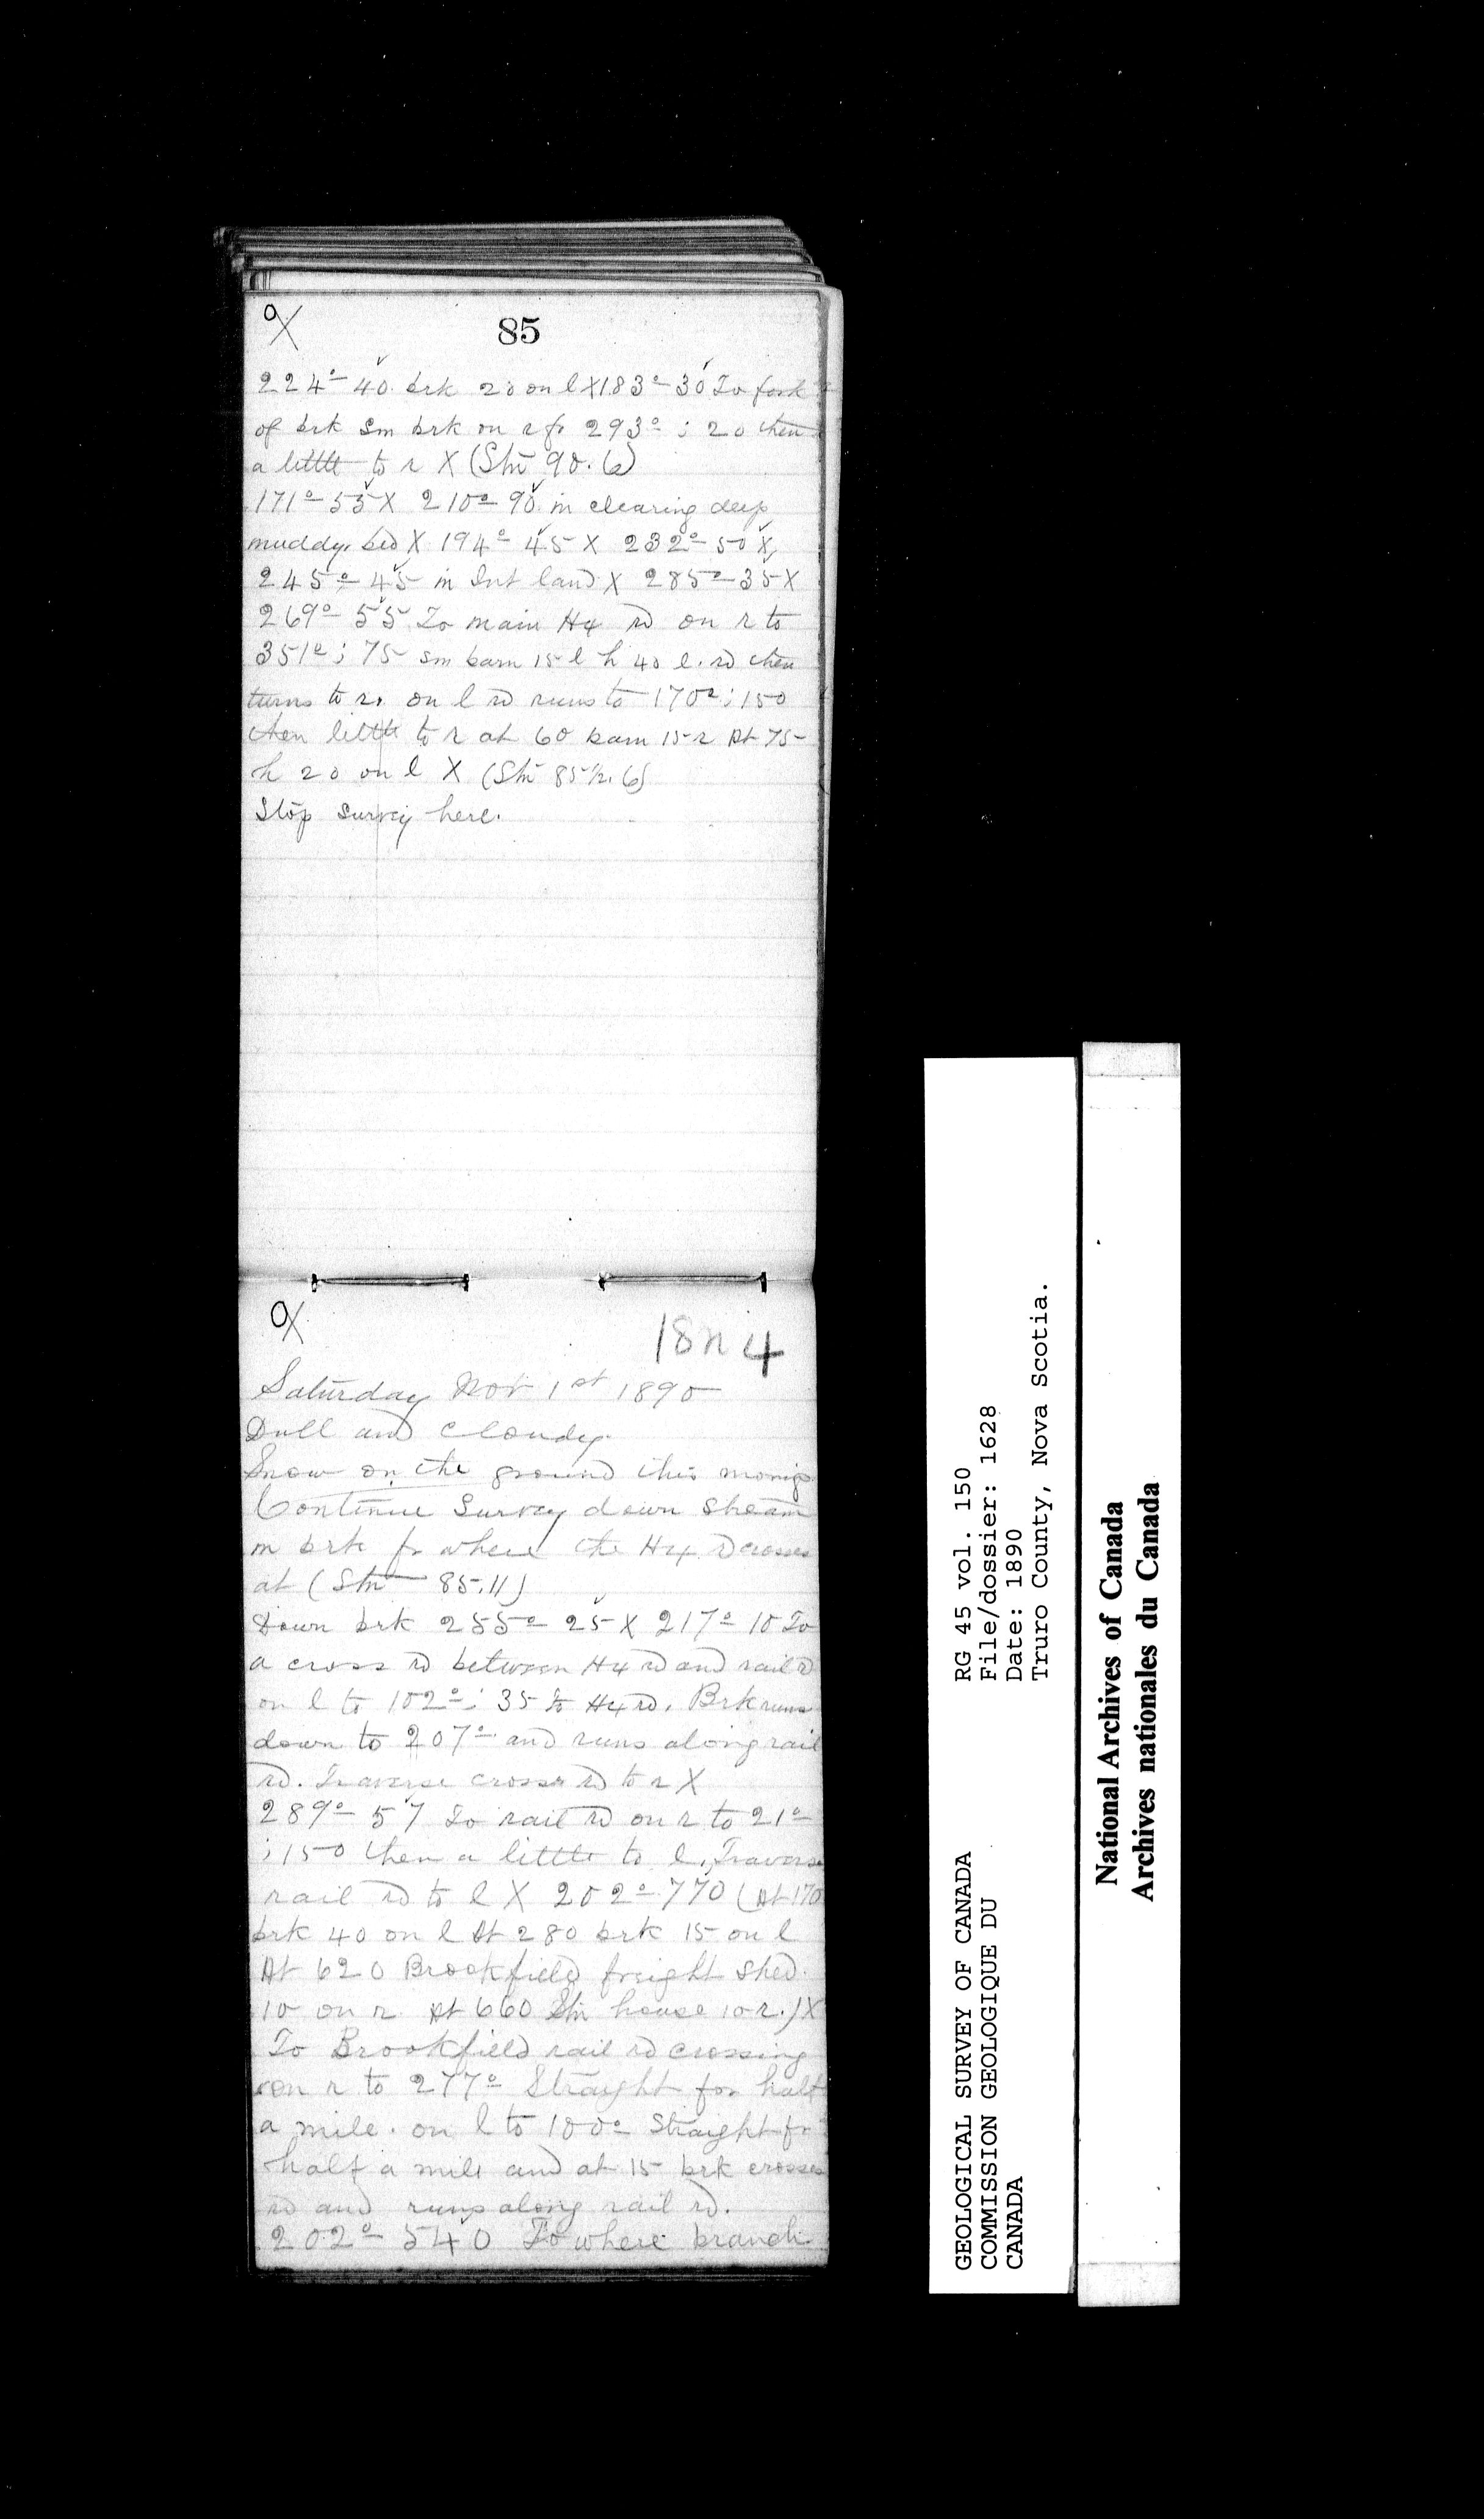 85
224°- 40 brk 20 on l X 183°- 30 To fork
of brk Sm brk on r fr 293° ; 20 then
a little to r X (Stn 90.6)
171°- 55 X 210°- 90 in clearing deep
muddy bed X 194°- 45 X 232°- 50 X
245°- 45 in Int land X 285°- 35 X
269°- 55 To main Hy rd on r to
351° ; 75 sm barn 15 l h 40 l. rd then
turns to r. on l rd runs to 170° ; 150
then little to r at 60 barn 15 r At 75
h 20 on l X (Stn 85½.6)
Stop Survey here.
18n4
Saturday Nov 1st 1890
Dull and cloudy.
Snow on the ground this morng
Continue Survey down stream
m brk fr where the Hy rd crosses
at (Stn 85.11)
Down brk 255°- 25 X 217°- 10 To
a cross rd between Hy rd and rail rd
on l to 102° ; 35 to Hy rd. Brk runs
down to 207° and runs along rail
rd. Traverse cross rd to r X
289°- 57 To rail rd on r to 21°
; 150 then a little to l. Traverse
rail rd to l X 202°- 770 (At 170
brk 40 on l At 280 brk 15 on l
At 620 Brookfield freight shed
10 on r At 660 Stn house 10 r.) X
To Brookfield rail rd crossing
on r to 277° Straight for half
a mile. on l to 100° Straight fr
half a mile and at 15 brk crosses
rd and runs along rail rd.
202°- 540 To where branch
GEOLOGICAL SURVEY OF CANADA
COMMISSION GEOLOGIQUE DU
CANADA
RG 45 vol. 150
File/dossier: 1628
Date: 1890
Truro County, Nova Scotia.
National Archives of Canada
Archives nationales du Canada